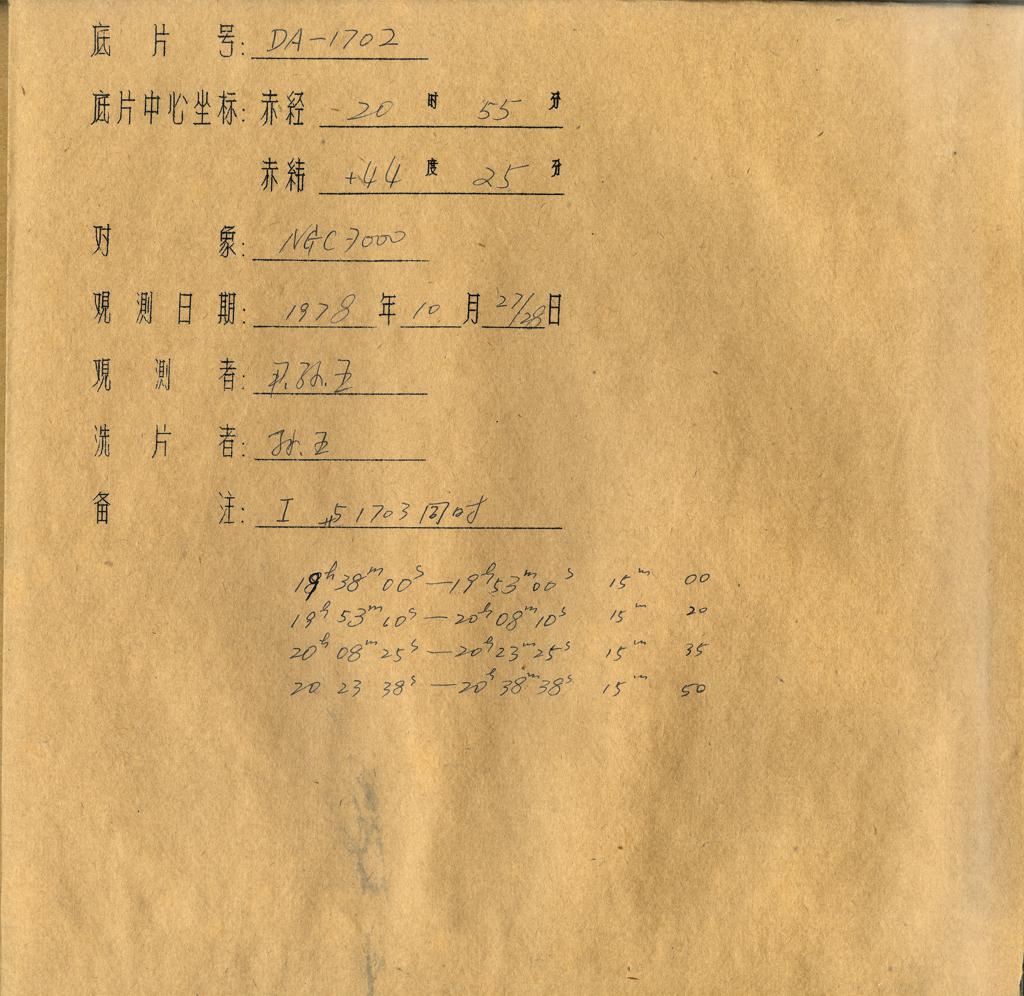 底片号: DA-1702
底片中心坐标: 赤经 -20 时 55 分
赤纬 +44 度 25 分
对象: NGC7000
观测日期: 1978 年 10 月 27/28 日
观测者: 尹.孙.王
洗片者: 孙.王
备注: I 与1703同时
19h38m00s—19h53m00s 15m 00
19h53m10s—20h08m10s 15m 20
20h08m25s—20h23m25s 15m 35
20 23 38s—20h38m38s 15m 50